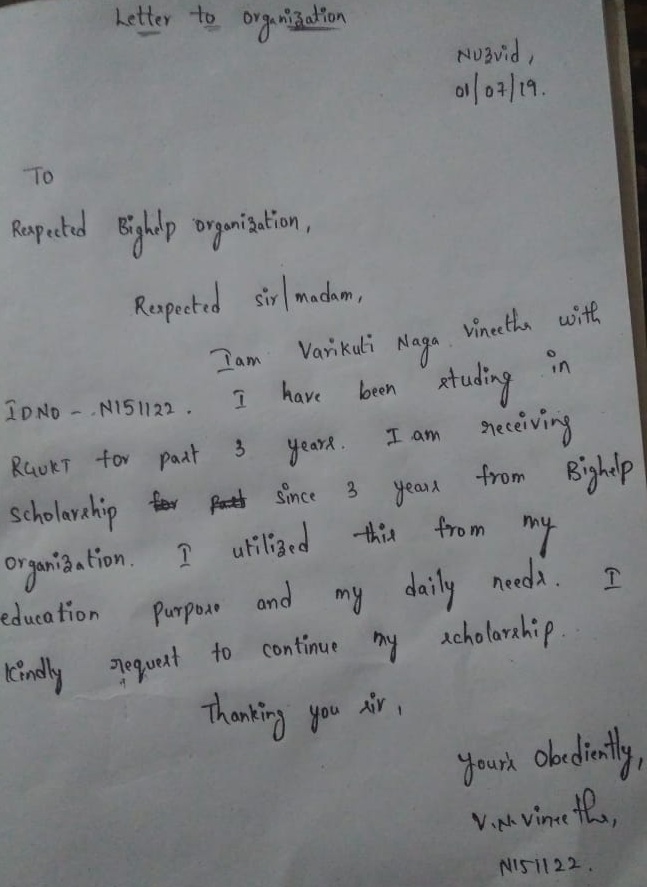 Letter to organization
Nuzvid,
01/07/19.
To
Respected Bighelp organization,
Respected sir/madam,
Iam Varikuti Naga Vineetha with
IDNO - N151122. I have been studing in
RGUKT for past 3 years. I am receiving
scholarship for past since 3 years from Bighelp
organization. I utilized this from my
education purpose and my daily needs. I
kindly request to continue my scholarship.
Thanking you sir,
yours Obediently,
V.N.Vineetha,
N151122.